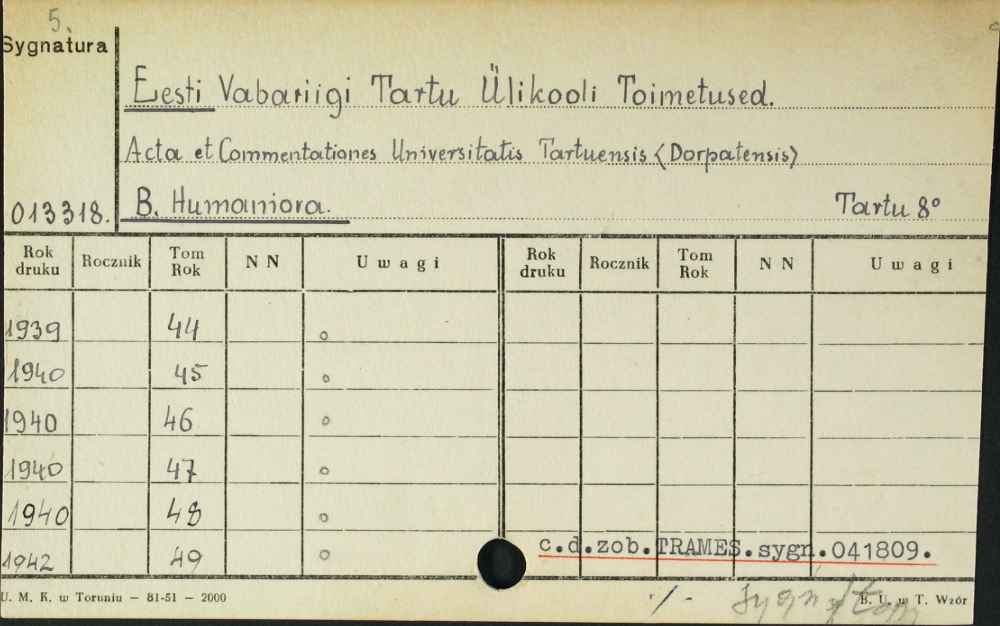 5.
Sygnatura
Eesti Vabariigi Tartu Ülikooli Toimetused.
Acta et Commentationes Universitatis Tartuensis (Dorpatensis)
013318. B. Humaniora. Tartu 8°
Rok druku Rocznik Tom Rok N N Uwagi Rok druku Rocznik Tom Rok N N Uwagi
1939 44 o
1940 45 o
1940 46 o
1940 47 o
1940 48 o
1942 49 o
c.d.zob.TRAMES.sygn.041809.
U. M. K. w Toruniu — 81-51 — 2000 B. U. w T. Wzór